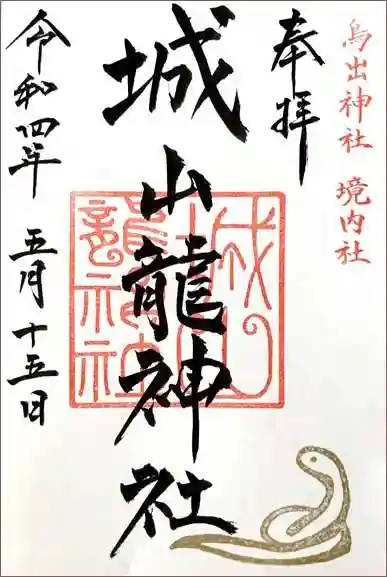 鳥出神社 境内社
奉拝
城山龍神社
城山
龍神社
令和四年 五月十五日